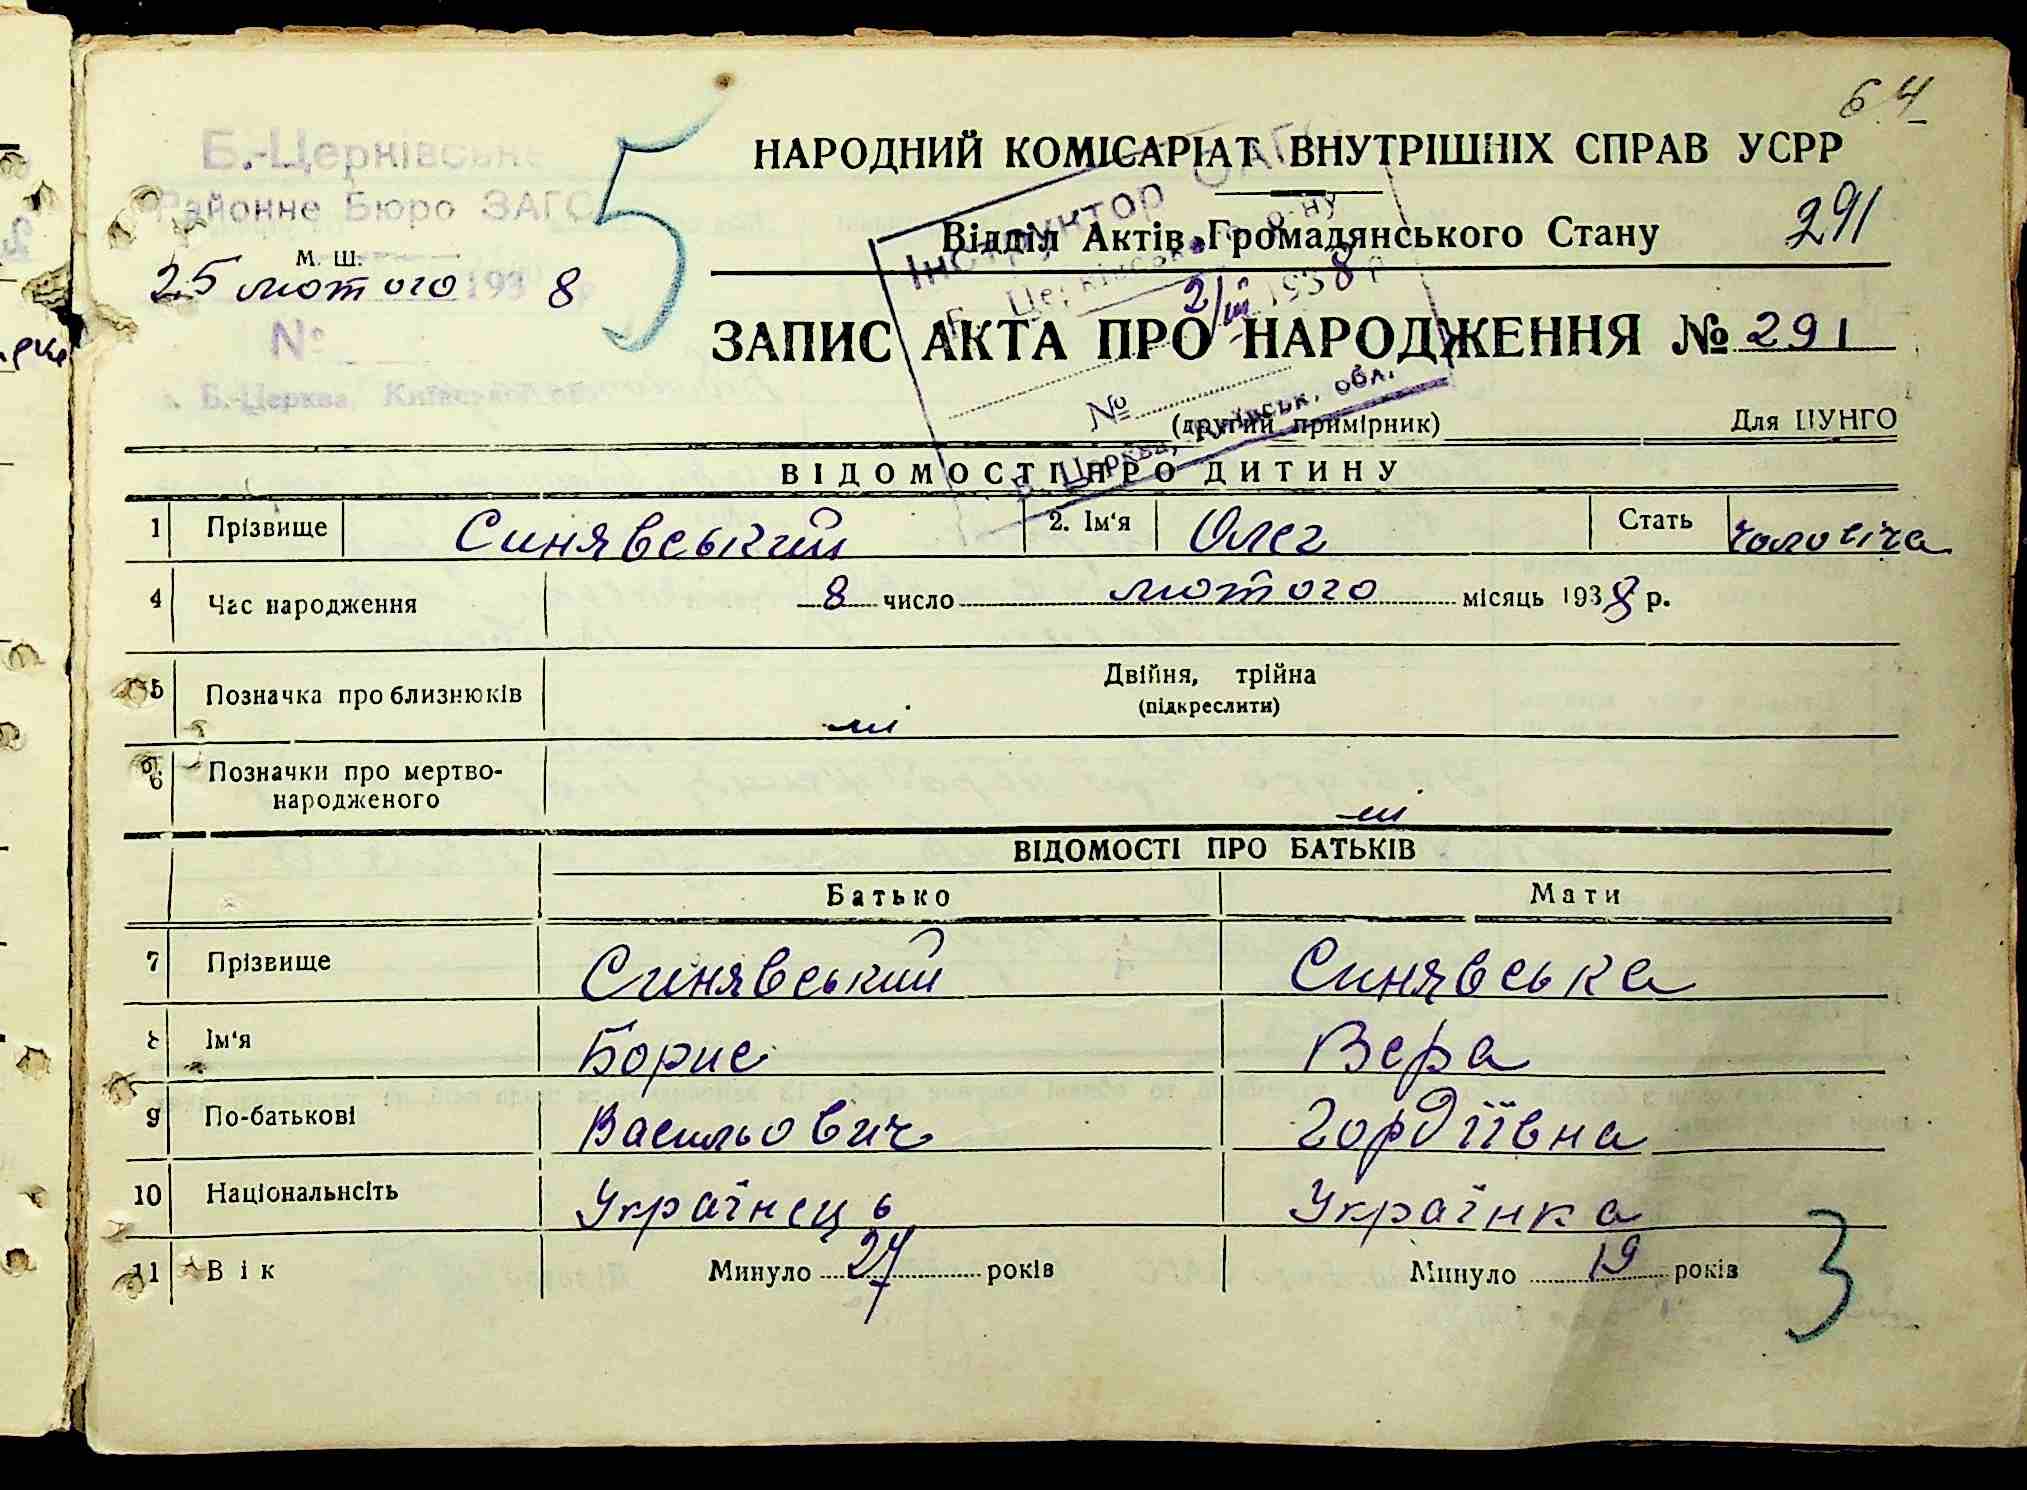 64
Б.-Церківське
Районне Бюро ЗАГС
М. Ш.
25 лютого 1938
№
Б.-Церква, Київської
5
НАРОДНИЙ КОМІСАРІАТ ВНУТРІШНІХ СПРАВ УСРР
Відділ Актів Громадянського Стану
291
Інструктор ОАГС
Б. Церківськ. р-ну
2/III 1938 р
№
Б. Церква, Київськ. обл.
ЗАПИС АКТА ПРО НАРОДЖЕННЯ № 291
(другий примірник)
Для ЦУНГО
ВІДОМОСТІ ПРО ДИТИНУ
1 Прізвище Синявський 2. Ім'я Олег Стать чоловіча
4 Час народження 8 число лютого місяць 1938 р.
5 Позначка про близнюків Двійня, трійна
(підкреслити)
ні
6 Позначки про мертво-
народженого
ні
ВІДОМОСТІ ПРО БАТЬКІВ
Батько Мати
7 Прізвище Синявський Синявська
8 Ім'я Борис Вера
9 По-батькові Васильович Гордіївна
10 Національнсіть Українець Українка
11 Вік Минуло 27 років Минуло 19 років
3